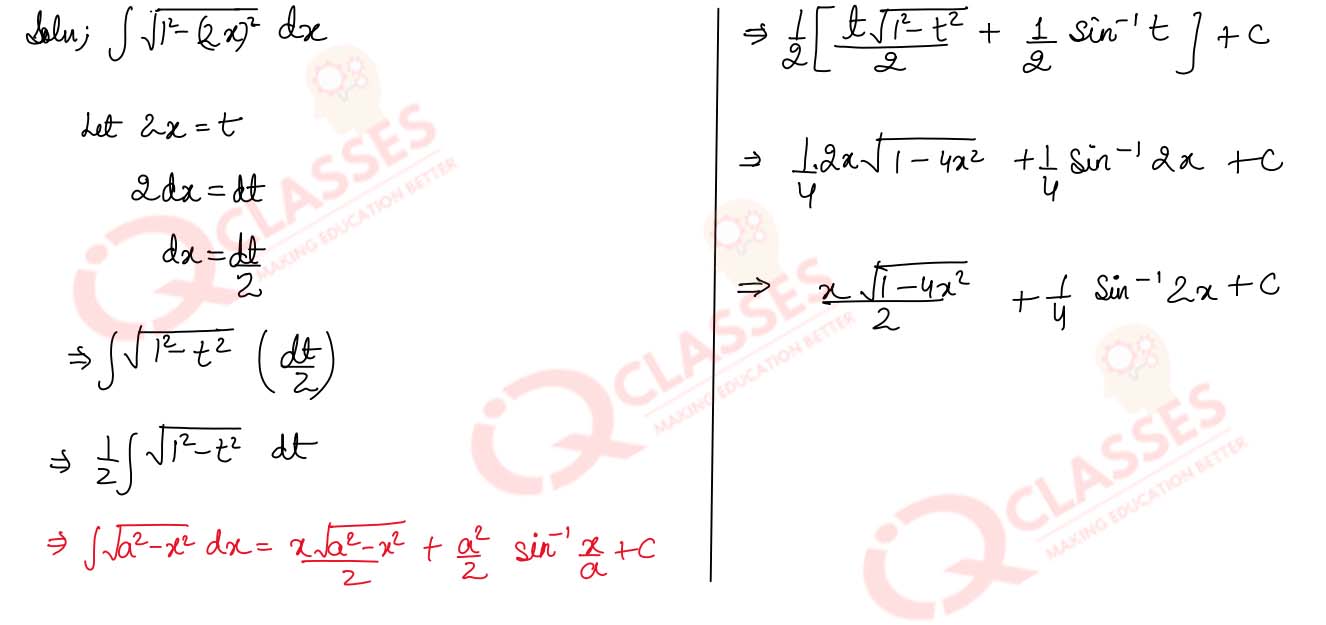 Soln; ∫ √(1² - (2x)²) dx
Let 2x = t
2dx = dt
dx = dt/2
⇒ ∫ √(1² - t²) (dt/2)
⇒ 1/2 ∫ √(1² - t²) dt
⇒ ∫ √(a² - x²) dx = x√(a² - x²)/2 + a²/2 sin⁻¹ x/a + C
⇒ 1/2 [ t√(1² - t²)/2 + 1/2 sin⁻¹ t ] + C
⇒ 1/4 . 2x√(1 - 4x²) + 1/4 sin⁻¹ 2x + C
⇒ x√(1 - 4x²)/2 + 1/4 sin⁻¹ 2x + C
iQ CLASSES
MAKING EDUCATION BETTER
iQ CLASSES
MAKING EDUCATION BETTER
iQ CLASSES
MAKING EDUCATION BETTER